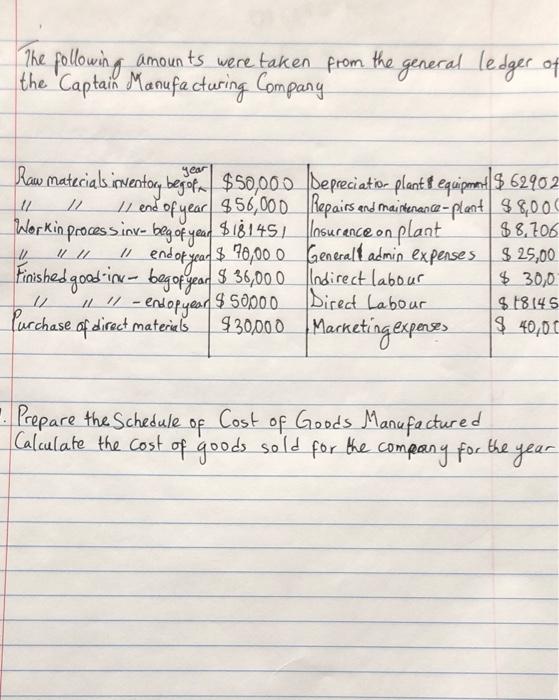 The following amounts were taken from the general ledger of
the Captain Manufacturing Company
Raw materials inventory beg of year $50,000 Depreciation plant & equipment $ 62902
" " " end of year $56,000 Repairs and maintenance - plant $ 8,000
Work in process inv - beg of year $181451 Insurance on plant $ 8,706
" " " " end of year $ 70,000 General & admin expenses $ 25,00
Finished good - inv - beg of year $ 36,000 Indirect labour $ 30,0
" " " - end of year $ 50000 Direct Labour $ 18145
Purchase of direct materials $ 30,000 Marketing expenses $ 40,00
Prepare the Schedule of Cost of Goods Manufactured
Calculate the cost of goods sold for the company for the year